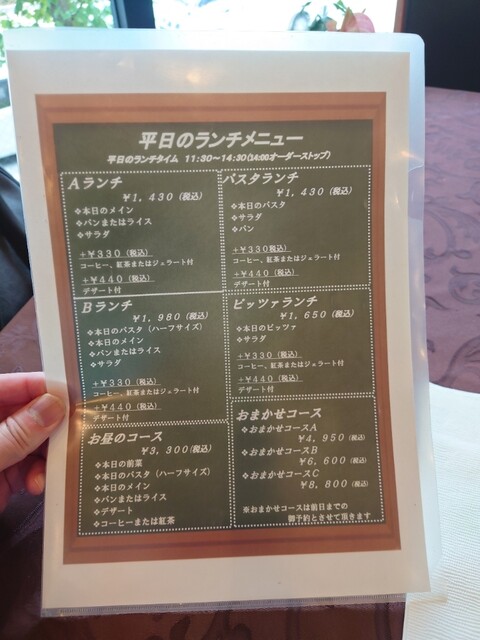 平日のランチメニュー
平日のランチタイム 11:30～14:30(14:00オーダーストップ)
Aランチ
¥1,430(税込)
❖本日のメイン
❖パンまたはライス
❖サラダ
+¥330(税込)
コーヒー、紅茶またはジェラート付
+¥440(税込)
デザート付
Bランチ
¥1,980(税込)
❖本日のパスタ(ハーフサイズ)
❖本日のメイン
❖パンまたはライス
❖サラダ
+¥330(税込)
コーヒー、紅茶またはジェラート付
+¥440(税込)
デザート付
お昼のコース
¥3,300(税込)
❖本日の前菜
❖本日のパスタ(ハーフサイズ)
❖本日のメイン
❖パンまたはライス
❖デザート
❖コーヒーまたは紅茶
パスタランチ
¥1,430(税込)
❖本日のパスタ
❖サラダ
❖パン
+¥330(税込)
コーヒー、紅茶またはジェラート付
+¥440(税込)
デザート付
ピッツァランチ
¥1,650(税込)
❖本日のピッツァ
❖サラダ
+¥330(税込)
コーヒー、紅茶またはジェラート付
+¥440(税込)
デザート付
おまかせコース
❖おまかせコースA
¥4,950(税込)
❖おまかせコースB
¥6,600(税込)
❖おまかせコースC
¥8,800(税込)
※おまかせコースは前日までの
御予約とさせて頂きます